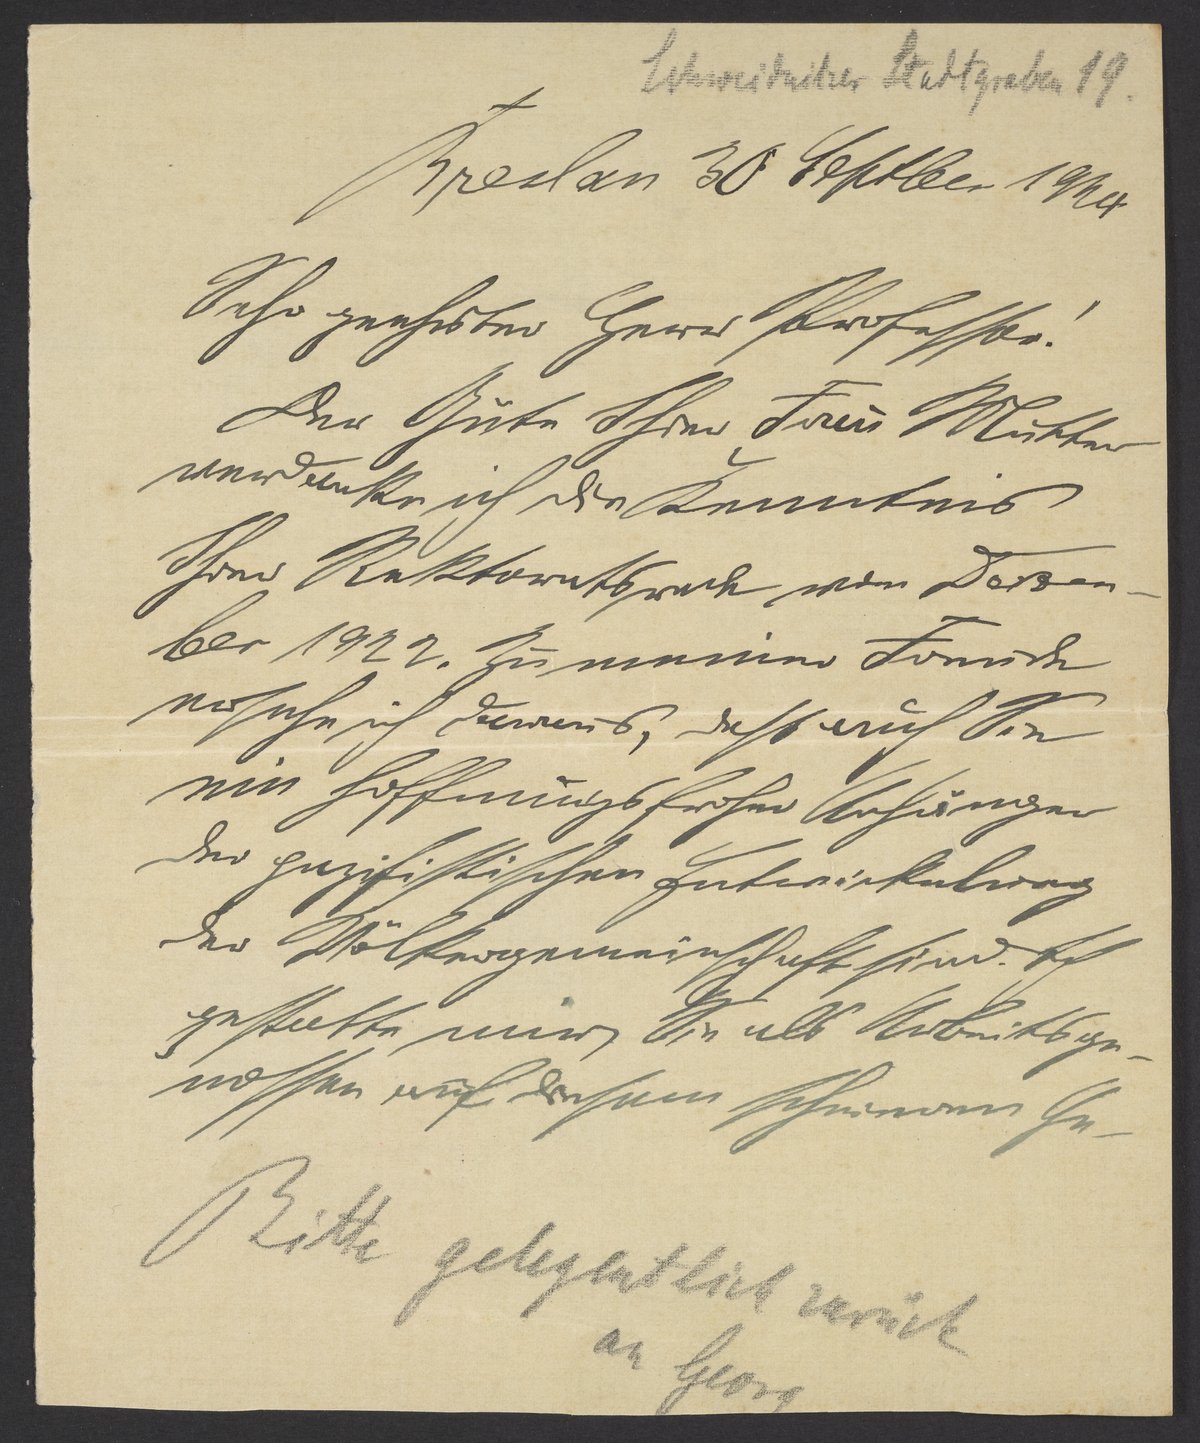 Schweidnitzer Stadtgraben 19.
Breslau 30 Septber 1924
Sehr geehrter Herr Professor!
Der Güte Ihrer Frau Mutter
verdanke ich die Kenntnis
Ihrer Rektoratsrede vom Dezem-
ber 1922. Zu meiner Freude
ersehe ich daraus, daß auch Sie
ein hoffnungsfroher Anhänger
der pazifistischen Entwickelung
der Völkergemeinschaft sind. Ich
gestatte mir, Sie als Arbeitsge-
nossen auf diesem schweren Ge-
Bitte gelegentlich zurück
an Georg